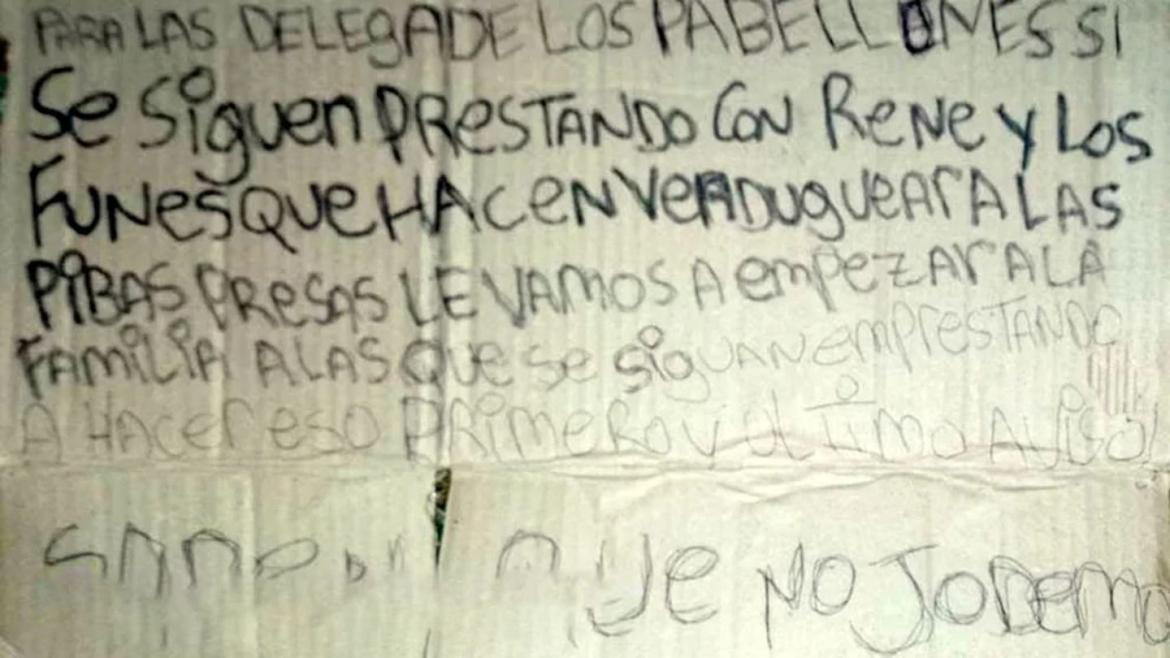 PARA LAS DELEGADE LOS PABELLONES SI
Se SiguEN PResTANDO CON ReNe y LOS
FUNes QUe HACeN VeRDugueAr A LAS
PiBAS PResAS LE VAMOS A empezAr A LA
FAMiLiA A LAS Que se siguAN empresTANDO
A HAcer eso PRimeRo y ulTimo AViso
QUe NO JODemo